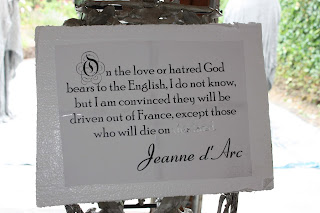 On the love or hatred God
bears to the English, I do not know,
but I am convinced they will be
driven out of France, except those
who will die on
Jeanne d'Arc